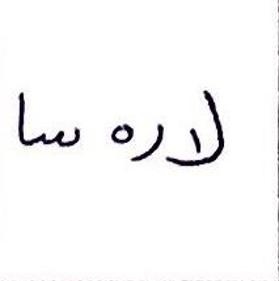 لاره سا